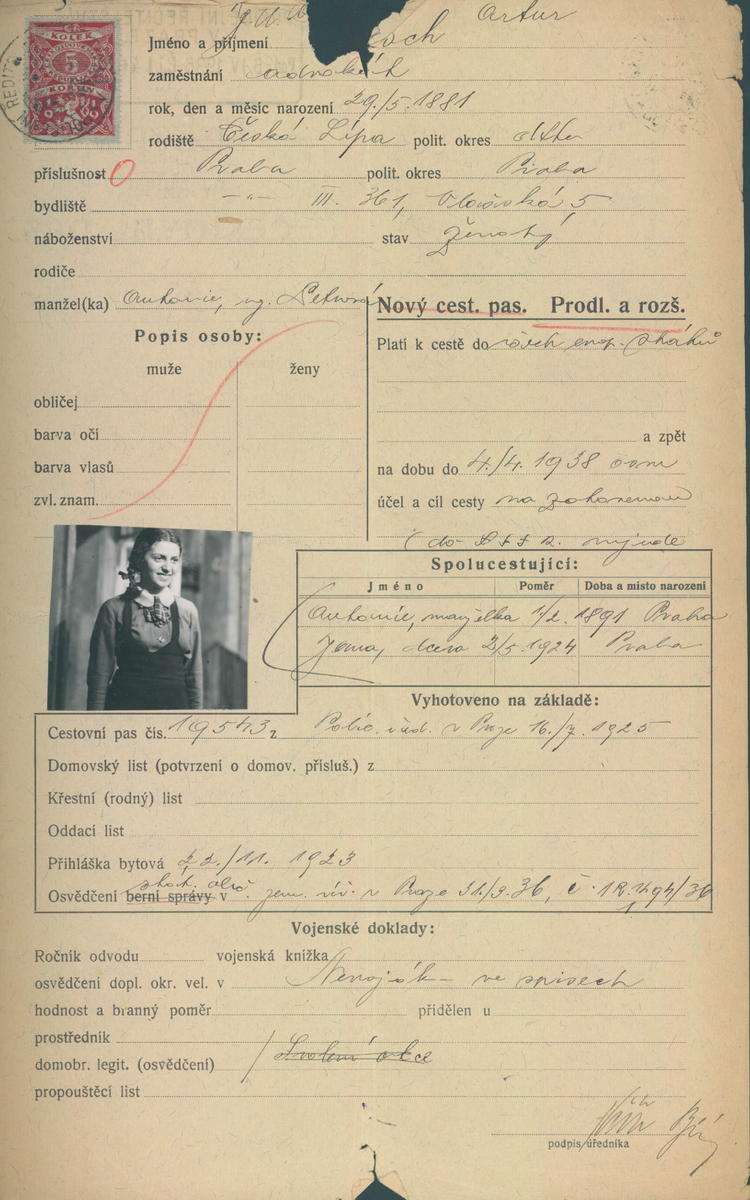 KOLEK
5
KORUN
Artur
Jméno a příjmení
zaměstnání advokát
rok, den a měsíc narození 29./5. 1881
rodiště Česká Lípa polit. okres
příslušnost Praha polit. okres Praha
bydliště -"- III. 361, Vlašská 5
náboženství stav ženatý
rodiče
manžel(ka) Antonie,
Nový cest. pas. Prodl. a rozš.
Popis osoby:
muže ženy
obličej
barva očí
barva vlasů
zvl. znam.
Platí k cestě do všech evrop. států
a zpět
na dobu do 4./4. 1938
účel a cíl cesty na zotavenou
(do
Spolucestující:
Jméno Poměr Doba a místo narození
Antonie, manželka 1/2. 1891 Praha
dcera 2/5. 1924 Praha
Vyhotoveno na základě:
Cestovní pas čís. 19543 z Polic. řed. v Praze 16./7. 1925
Domovský list (potvrzení o domov. přísluš.) z
Křestní (rodný) list
Oddací list
Přihláška bytová 22./11. 1923
Osvědčení berní správy v v Praze 31/3. 36, č.
Vojenské doklady:
Ročník odvodu vojenská knížka
osvědčení dopl. okr. vel. v Nevoják – ve spisech
hodnost a branný poměr přidělen u
prostředník
domobr. legit. (osvědčení)
propouštěcí list
podpis úředníka